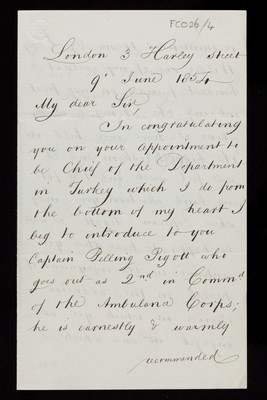 FCO26/4
London 3 Harley Street
9th June 1854
My dear Sir,
In congratulating
you on your appointment to
be Chief of the Department
in Turkey which I do from
the bottom of my heart I
beg to introduce to you
Captain Pelling Pigott who
goes out as 2nd in Commd
of the Ambulance Corps;
he is earnestly & warmly
recommended